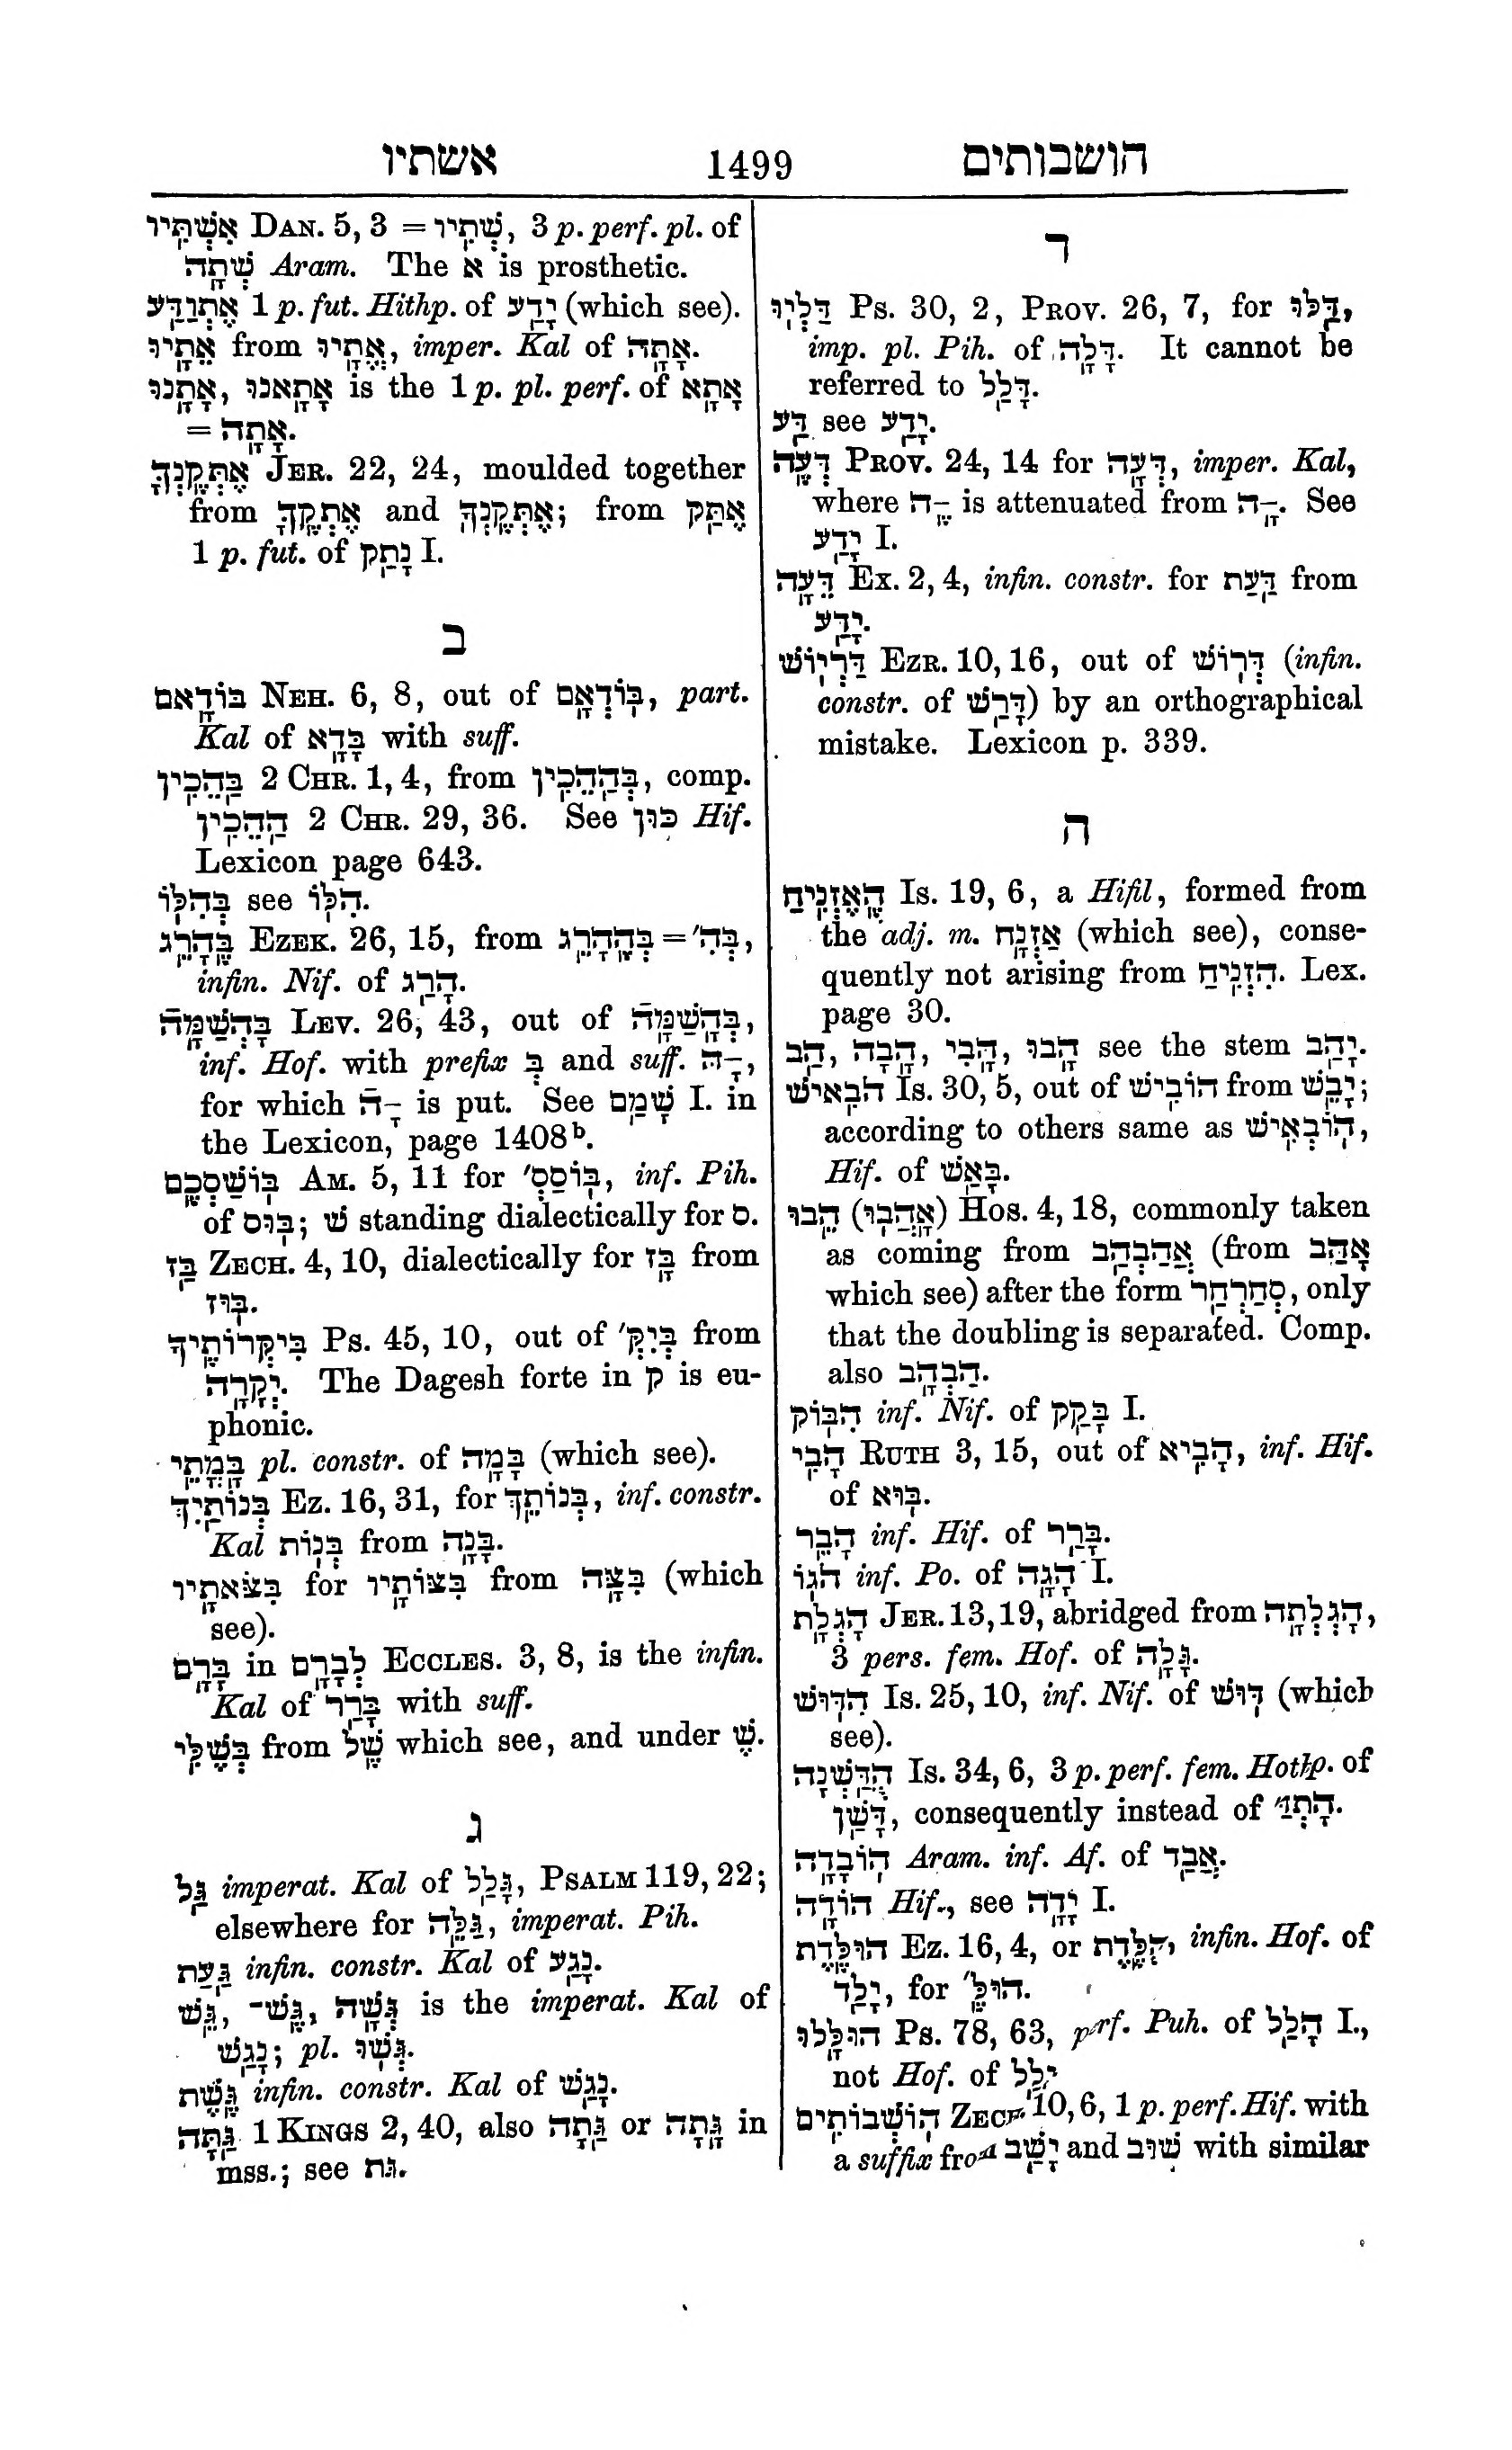 אשתיו 1499 הושבותים
אִשְׁתִּיו DAN. 5, 3 = שְׁתִיו, 3 p. perf. pl. of
שְׁתָה Aram. The א is prosthetic.
אֶתְוַדַּע 1 p. fut. Hithp. of יָדַע (which see).
אֵתָיוּ from אֱתָיוּ, imper. Kal of אָתָה.
אָתָנוּ, אָתָאנוּ is the 1 p. pl. perf. of אָתָא
= אָתָה.
אֶתְּקֶנְךָּ JER. 22, 24, moulded together
from אֶתְּקֶךָּ and אֶתְּקֶנְךָ; from אֶתַּק
1 p. fut. of נָתַק I.
ב
בּוֹדָאם NEH. 6, 8, out of בּוֹדְאָם, part.
Kal of בָּדָא with suff.
בַּהֵכִין 2 CHR. 1, 4, from בְּהַהֵכִין, comp.
הַהֵכִין 2 CHR. 29, 36. See כּוּן Hif.
Lexicon page 643.
בְּהִלּוֹ see הִלּוֹ.
בֶּהָרֵג EZEK. 26, 15, from בְּהֶהָרֵג = בְּהִ׳,
infin. Nif. of הָרַג.
בָּהְשַׁמָּה LEV. 26, 43, out of בְּהָשַׁמָּהּ,
inf. Hof. with prefix בְּ and suff. ־ָהּ,
for which ־ָה is put. See שָׁמַם I. in
the Lexicon, page 1408ᵇ.
בּוֹשַׁסְכֶם AM. 5, 11 for בּוֹסַסְ׳, inf. Pih.
of בּוּס; שׁ standing dialectically for ס.
בַּז ZECH. 4, 10, dialectically for בָּז from
בּוּז.
בִּיקְּרוֹתֶיךָ Ps. 45, 10, out of בְּיִקְּ׳ from
יְקָרָה. The Dagesh forte in ק is eu-
phonic.
בָּמֳתֵי pl. constr. of בָּמָה (which see).
בְּנוֹתַיִךְ Ez. 16, 31, for בְּנוֹתֵךְ, inf. constr.
Kal בְּנוֹת from בָּנָה.
בִּצֹּאתָיו for בִּצּוֹתָיו from בִּצָּה (which
see).
בָּרָם in לְבָרָם ECCLES. 3, 8, is the infin.
Kal of בָּרַר with suff.
בְּשֶׁלִּי from שֶׁל which see, and under שֶׁ.
ג
גַּל imperat. Kal of גָּלַל, PSALM 119, 22;
elsewhere for גַּלֵּה, imperat. Pih.
גַּעַת infin. constr. Kal of נָגַע.
גֵּשׁ, גֶּשׁ־, גְּשָׁה is the imperat. Kal of
נָגַשׁ; pl. גְּשׁוּ.
גֶּשֶׁת infin. constr. Kal of נָגַשׁ.
גַּתָּה 1 KINGS 2, 40, also גַּתָה or גָּתָה in
mss.; see גת.
ד
דַּלְיוּ Ps. 30, 2, PROV. 26, 7, for דַּלּוּ,
imp. pl. Pih. of דָּלָה. It cannot be
referred to דָּלַל.
דַּע see יָדַע.
דְּעֶה PROV. 24, 14 for דְּעָה, imper. Kal,
where ־ֶה is attenuated from ־ָה. See
יָדַע I.
דֵּעָה Ex. 2, 4, infin. constr. for דַּעַת from
יָדַע.
דַּרְיוֹשׁ EZR. 10, 16, out of דְּרוֹשׁ (infin.
constr. of דָּרַשׁ) by an orthographical
mistake. Lexicon p. 339.
ה
הֶאֶזְנִיחַ Is. 19, 6, a Hifil, formed from
the adj. m. אַזְנָח (which see), conse-
quently not arising from הִזְנִיחַ. Lex.
page 30.
הַב, הָבָה, הָבִי, הָבוּ see the stem יָהַב.
הֹבִאישׁ Is. 30, 5, out of הוֹבִישׁ from יָבֵשׁ;
according to others same as הוֹבְאִישׁ,
Hif. of בָּאַשׁ.
הֵבוּ (אָהֲבוּ) Hos. 4, 18, commonly taken
as coming from אֲהַבְהַב (from אָהַב
which see) after the form סְחַרְחַר, only
that the doubling is separated. Comp.
also הַבְהָב.
הִבּוֹק inf. Nif. of בָּקַק I.
הָבִי RUTH 3, 15, out of הָבִיא, inf. Hif.
of בּוֹא.
הָבֵר inf. Hif. of בָּרַר.
הֹגוֹ inf. Po. of הָגָה I.
הָגְלָת JER. 13, 19, abridged from הָגְלְתָה,
3 pers. fem. Hof. of גָּלָה.
הִדּוּשׁ Is. 25, 10, inf. Nif. of דּוּשׁ (which
see).
הֻדַּשְּׁנָה Is. 34, 6, 3 p. perf. fem. Hothp. of
דָּשַׁן, consequently instead of הָתְדַּ׳.
הוֹבָדָה Aram. inf. Af. of אֲבַד.
הוֹדָה Hif., see יָדָה I.
הוּלֶּדֶת Ez. 16, 4, or הֻלֶּדֶת, infin. Hof. of
יָלַד, for הוּלֶּ׳.
הוּלָּלוּ Ps. 78, 63, perf. Puh. of הָלַל I.,
not Hof. of יָלַל.
הוֹשְׁבוֹתִים ZECH. 10, 6, 1 p. perf. Hif. with
a suffix from יָשַׁב and שׁוּב with similar